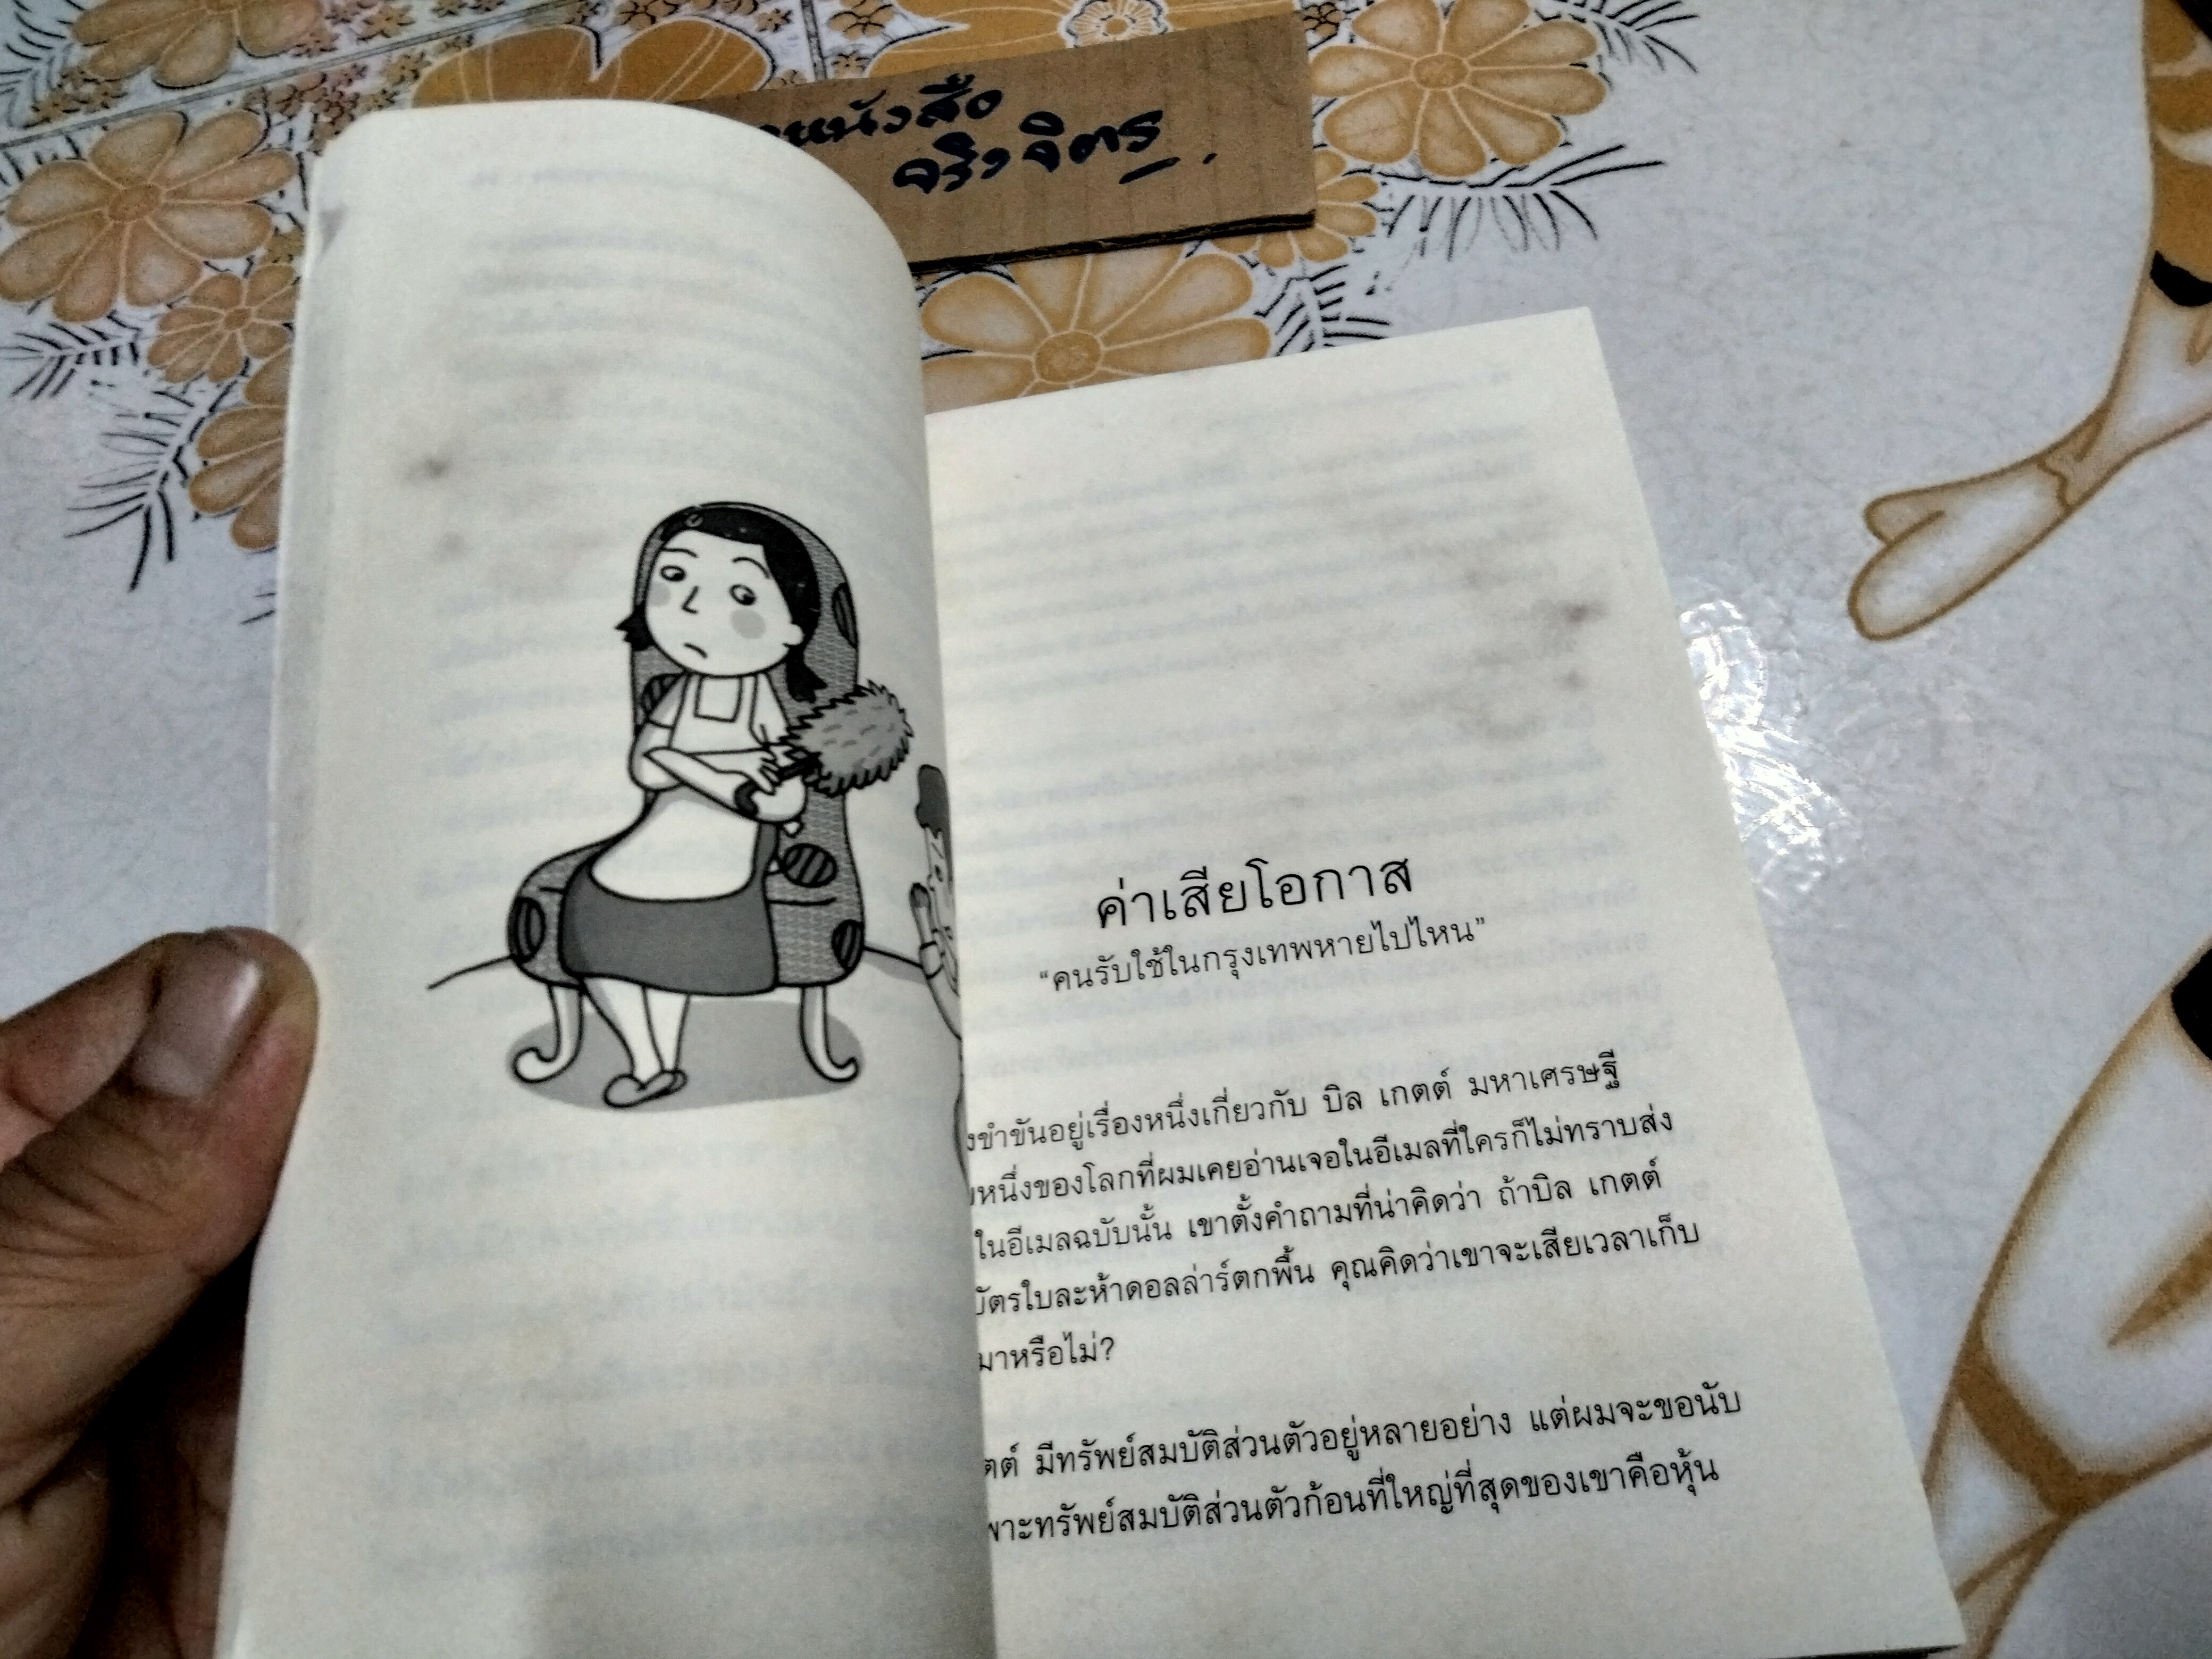 หนังสือ
จริงจิตร
ค่าเสียโอกาส
“คนรับใช้ในกรุงเทพหายไปไหน”
ขำขันอยู่เรื่องหนึ่งเกี่ยวกับ บิล เกตต์ มหาเศรษฐี
หนึ่งของโลกที่ผมเคยอ่านเจอในอีเมลที่ใครก็ไม่ทราบส่ง
ในอีเมลฉบับนั้น เขาตั้งคำถามที่น่าคิดว่า ถ้าบิล เกตต์
บัตรใบละห้าดอลล่าร์ตกพื้น คุณคิดว่าเขาจะเสียเวลาเก็บ
มาหรือไม่?
ตต์ มีทรัพย์สมบัติส่วนตัวอยู่หลายอย่าง แต่ผมจะขอนับ
พาะทรัพย์สมบัติส่วนตัวก้อนที่ใหญ่ที่สุดของเขาคือหุ้น